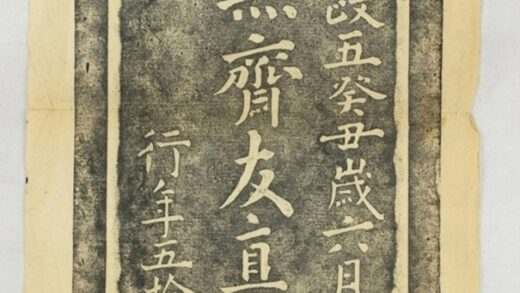 政五癸丑歳六月
無齋友直
行年五拾